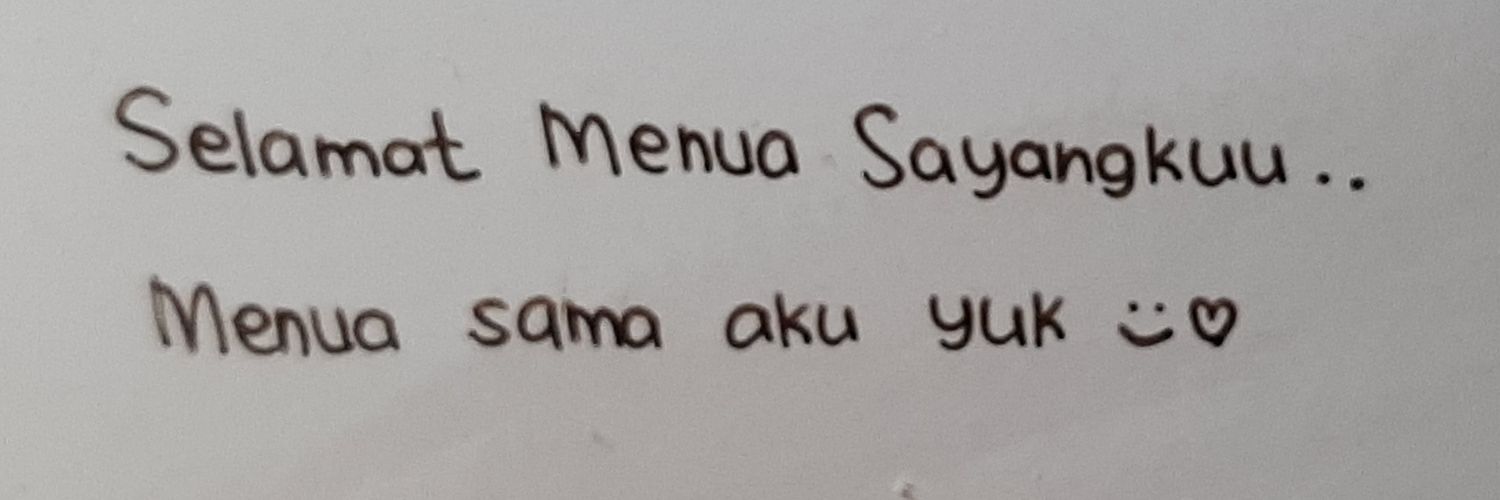 Selamat Menua Sayangkuu..
Menua sama aku yuk :) ♡